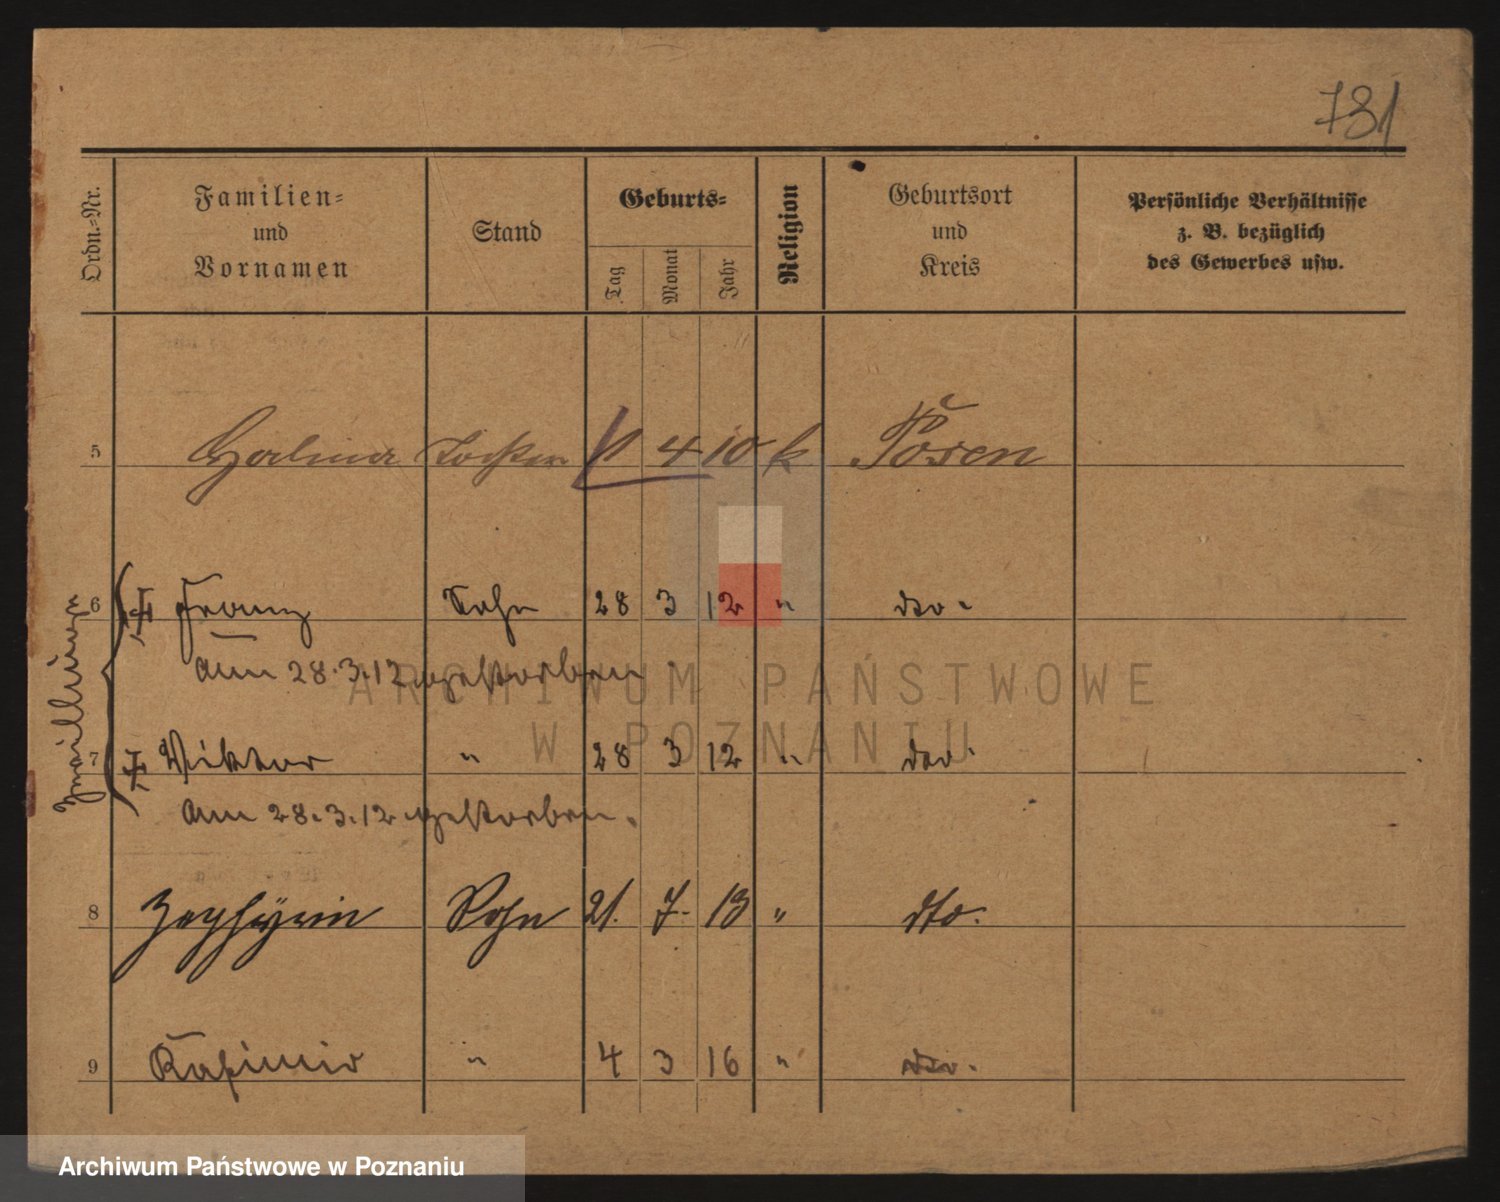 781
Ordn.-Nr.
Familien- und Vornamen
Stand
Geburts-
Tag
Monat
Jahr
Religion
Geburtsort und Kreis
Persönliche Verhältnisse z. B. bezüglich des Gewerbes usw.
5 Halina Tochter 4 10 k Posen
Zwillinge
6 Franz Sohn 28 3 12 " dto.
am 28.3.12 gestorben
7 Viktor " 28 3 12 " dto.
am 28.3.12 gestorben.
8 Zephyrin Sohn 21. 7. 13 " dto.
9 Kasimir " 4 3 16 " dto.
ARCHIWUM PAŃSTWOWE
W POZNANIU
Archiwum Państwowe w Poznaniu